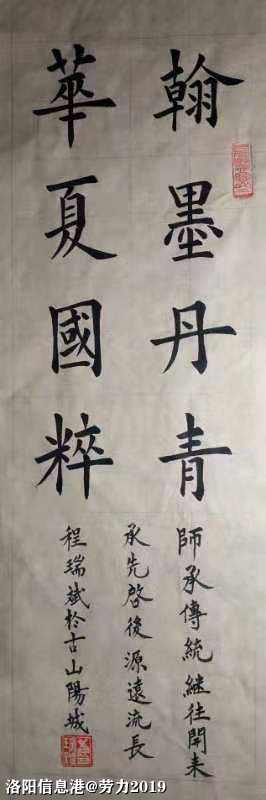 翰墨丹青
華夏國粹
師承傳統繼往開来
承先啓後源遠流長
程瑞斌於古山陽城
洛阳信息港@劳力2019